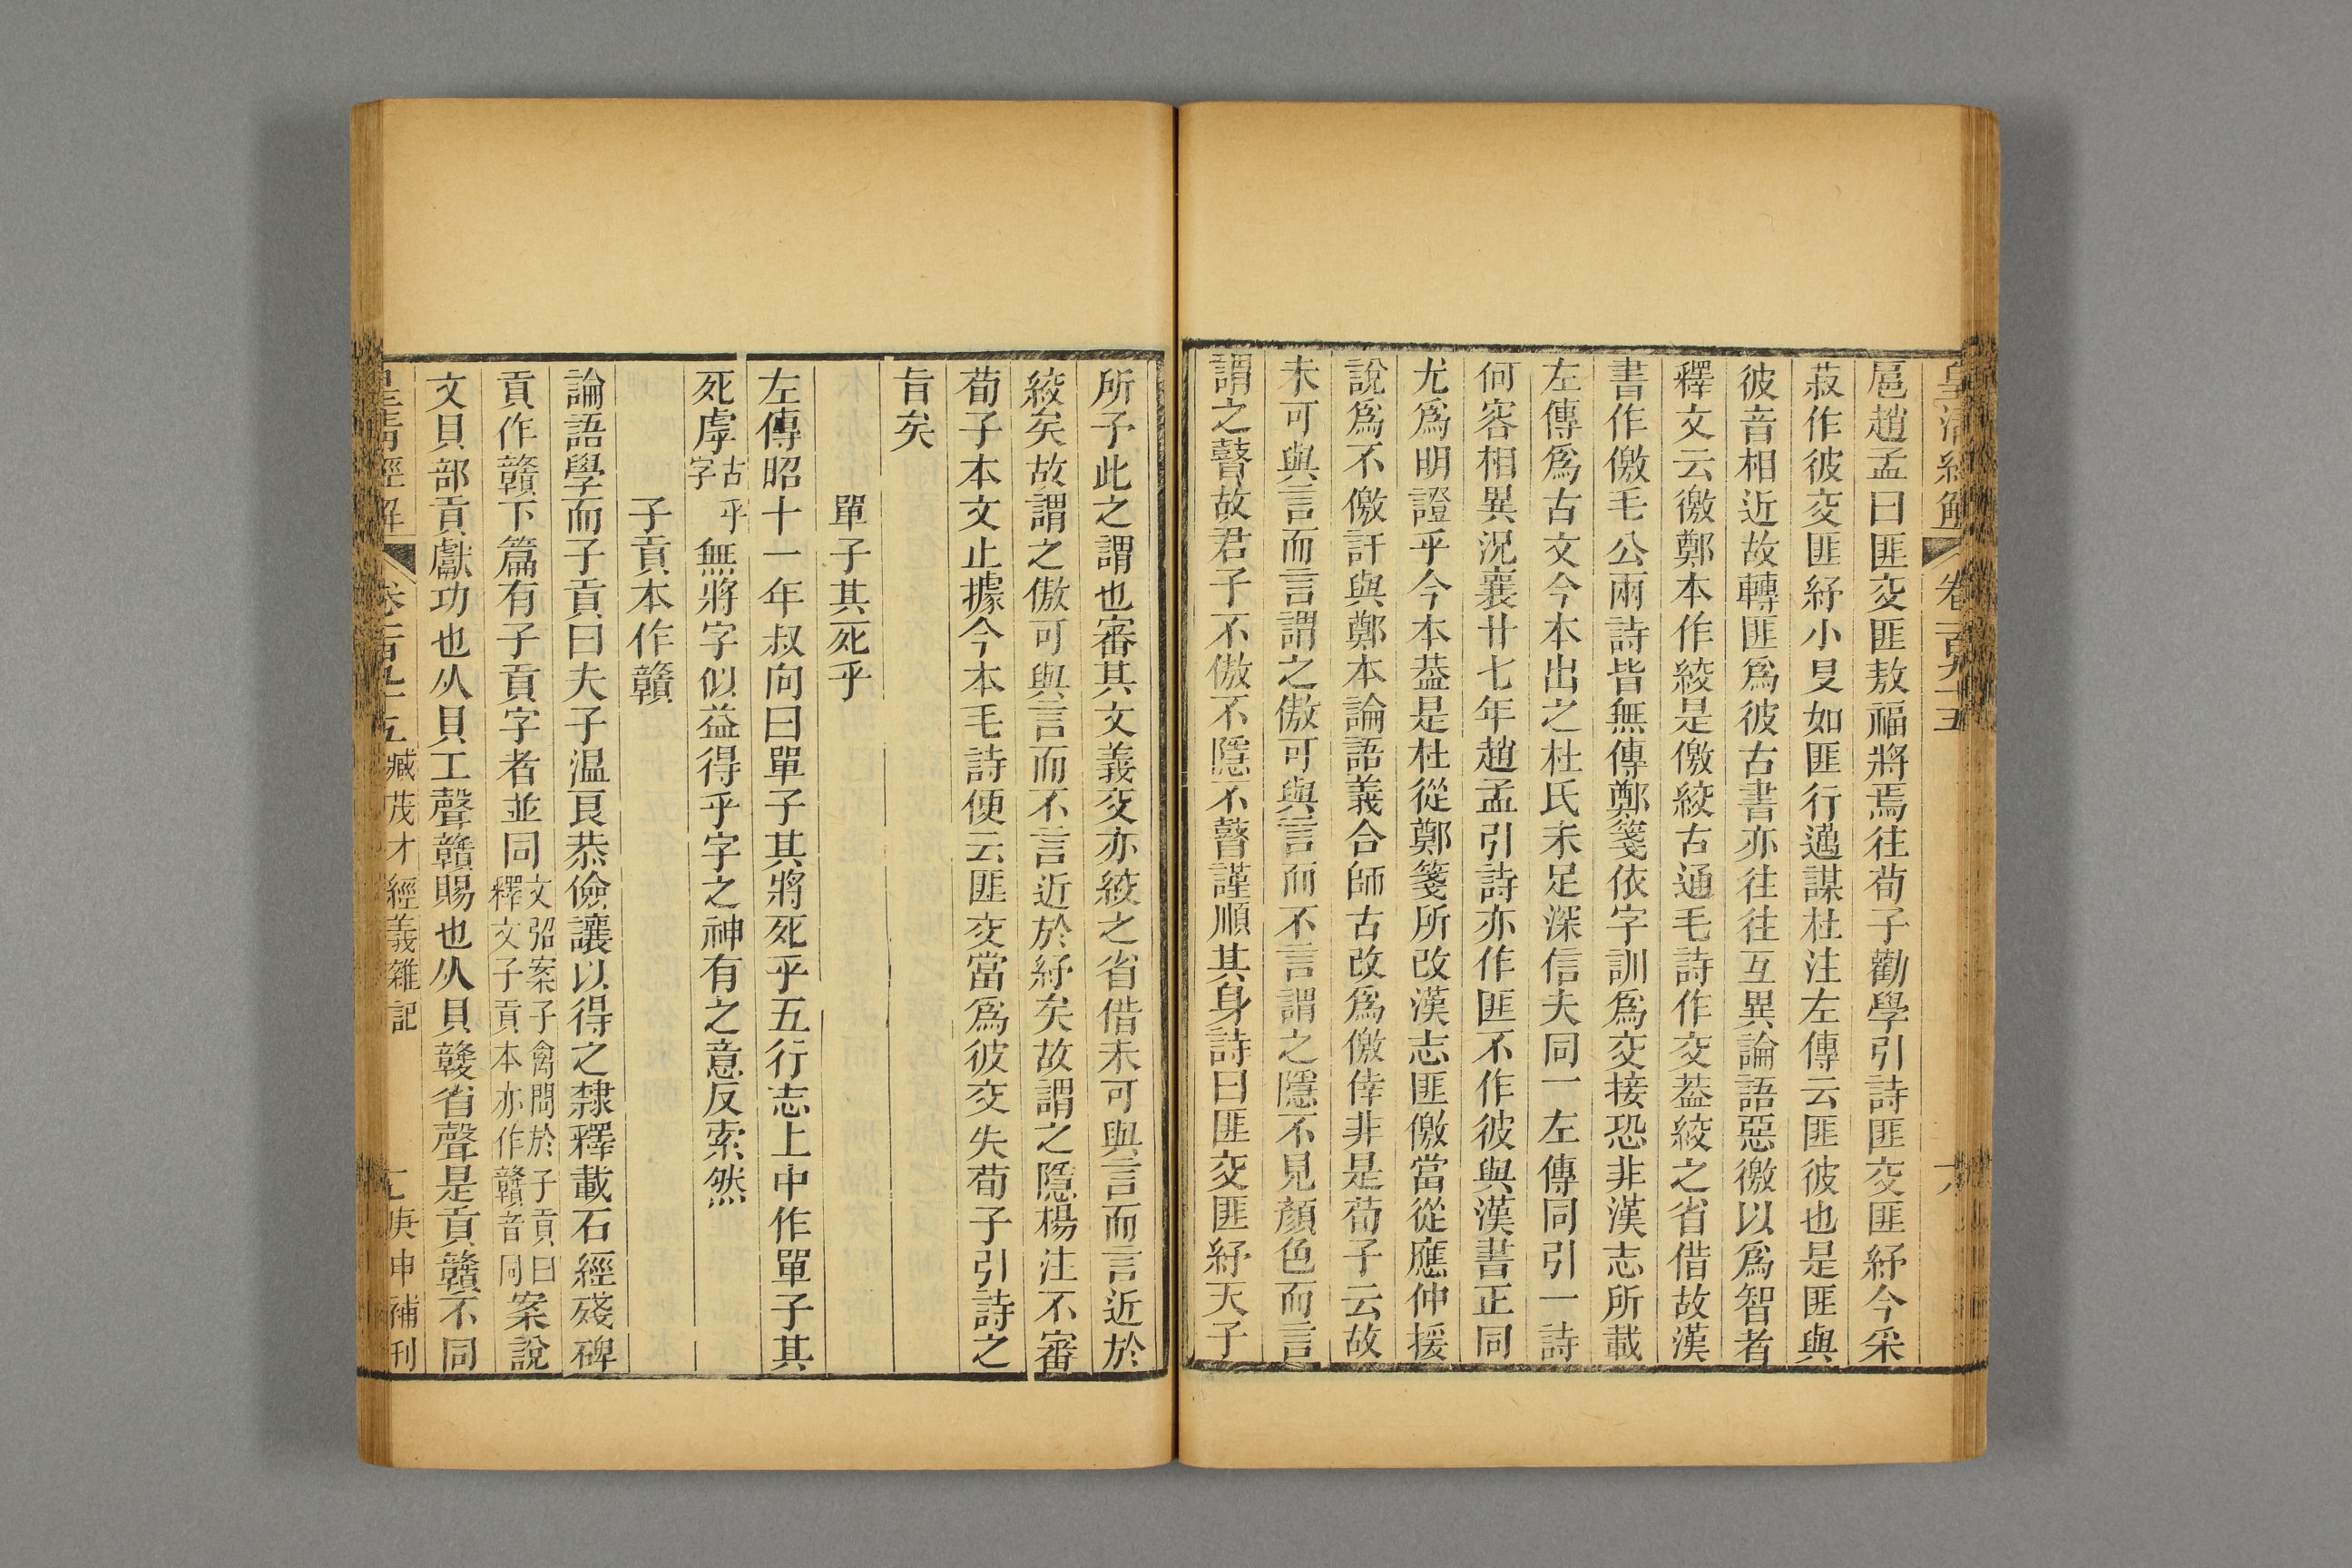 扈趙孟曰匪交匪敖福將焉往荀子勸學引詩匪交匪紓今采
菽作彼交匪紓小旻如匪行邁謀杜注左傳云匪彼也是匪與
彼音相近故轉匪爲彼古書亦往往互異論語惡徼以爲智者
釋文云徼鄭本作絞是儌絞古通毛詩作交葢絞之省借故漢
書作儌毛公兩詩皆無傳鄭箋依字訓爲交接恐非漢志所載
左傳爲古文今本出之杜氏未足深信夫同一左傳同引一詩
何容相異況襄廿七年趙孟引詩亦作匪不作彼與漢書正同
尤爲明證乎今本葢是杜從鄭箋所改漢志匪儌當從應仲援
說爲不儌訐與鄭本論語義合師古改爲儌倖非是荀子云故
未可與言而言謂之傲可與言而不言謂之隱不見顏色而言
謂之瞽故君子不傲不隱不瞽謹順其身詩曰匪交匪紓天子
所予此之謂也審其文義交亦絞之省借未可與言而言近於
絞矣故謂之傲可與言而不言近於紓矣故謂之隱楊注不審
荀子本文止據今本毛詩便云匪交當爲彼交失荀子引詩之
旨矣
單子其死乎
左傳昭十一年叔向曰單子其將死乎五行志上中作單子其
死虖古乎字無將字似益得乎字之神有之意反索然
子貢本作贛
論語學而子貢曰夫子温良恭儉讓以得之隸釋載石經殘碑
貢作贛下篇有子貢字者並同文弨案子禽問於子貢曰釋文子貢本亦作贛音同案說
文貝部貢獻功也从貝工聲贛賜也从貝竷省聲是貢贛不同
皇清經解 卷 臧茂才經義雜記 庚申補刊